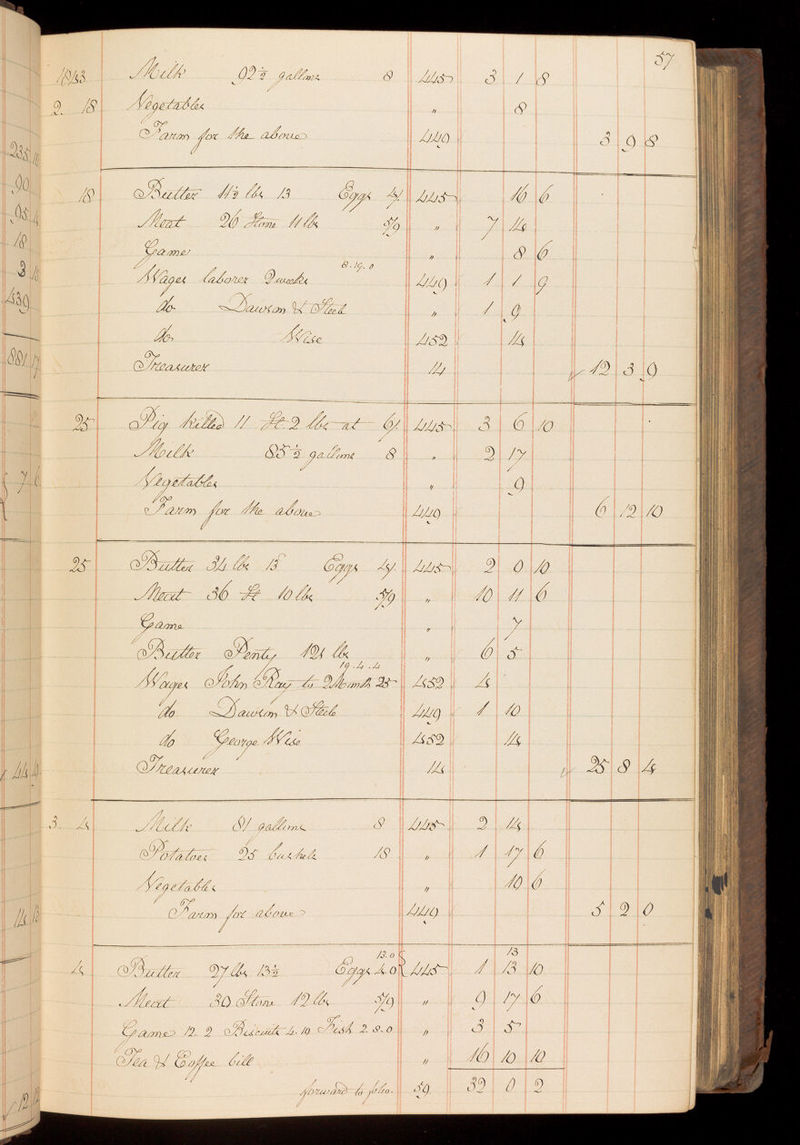 57
1843 Milk 92½ gallons 8 445 3 1 8
2. 18 Vegetables " 8
Farm for the above 449 3 9 8
18 Butter 11½ lbs 13 Eggs 4/. 445 16 6
Meat 26 Stone 11 lbs 5/9 " 7 14
Game " 8 6
8.19.0
Wages laborer 2 weeks 449 1 1 9
do Dawson & Steele " 1 9
do Wise 452 14
Treasurer 14 ✓ 12 3 9
25 Pig killed 11 St. 2 lbs at 6/. 445 3 6 10
Milk 85½ gallons 8 " 2 17
Vegetables " 9
Farm for the above 449 6 12 10
25 Butter 34 lbs 13 Eggs 4/. 445 2 0 10
Meat 36 St 10 lbs 5/9 " 10 11 6
Game " 7
Butter Penty 124 lbs " 6 5
19.4.4
Wages John Ray to 2 Month 25 452 4
do Dawson & Steele 449 1 10
do George Wise 452 14
Treasurer 14 ✓ 25 8 4
3. 4 Milk 81 gallons 8 445 2 14
Potatoes 25 bushels 18 " 1 17 6
Vegetables " 10 6
Farm for above 449 5 2 0
13.0 13
4 Butter 27 lbs 13½ Eggs 4.0 445 1 13 10
Meat 30 Stone 12 lbs 5/9 " 9 17 6
Game 12.2 Biscuits 4.10 Fish 2.8.0 " 3 5
Tea & Coffee bill " 16 10 10
forward to folio 59 32 0 2